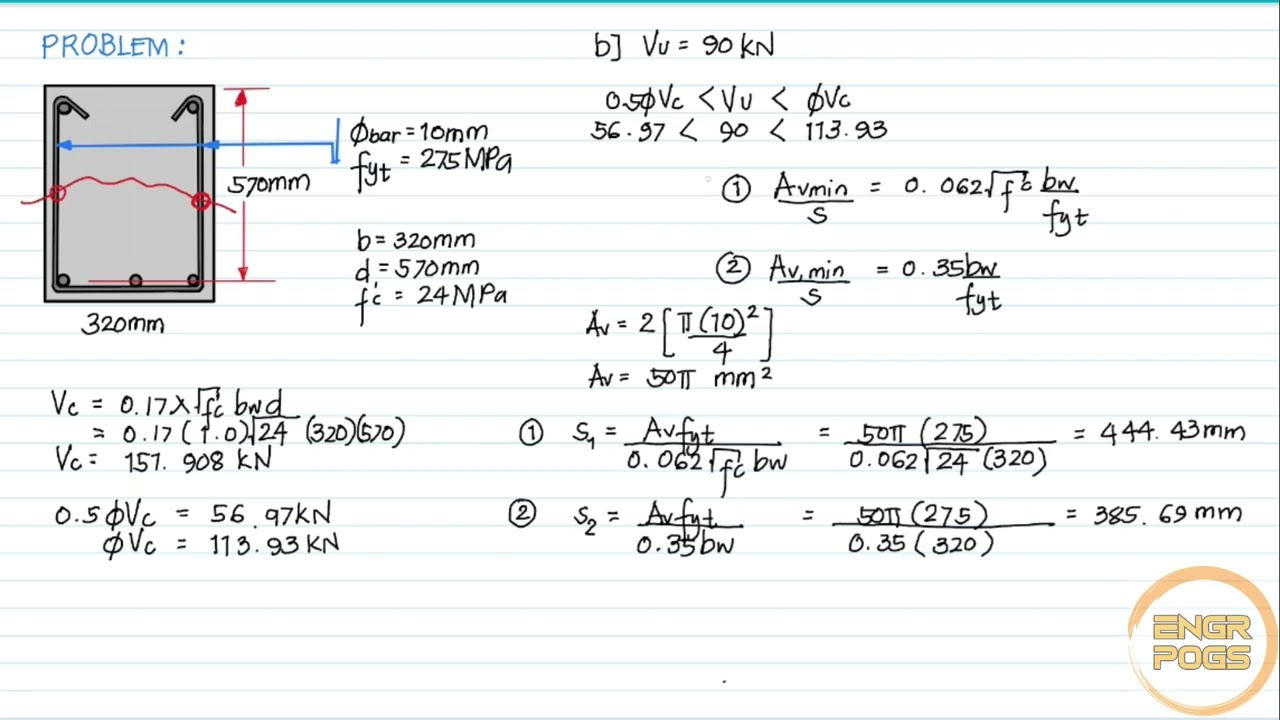 PROBLEM:
570mm
320mm
ϕbar = 10mm
fyt = 275MPa
b = 320mm
d = 570mm
f'c = 24MPa
Vc = 0.17λ√f'c bwd
= 0.17(1.0)√24 (320)(570)
Vc = 157.908 KN
0.5ϕVc = 56.97KN
ϕVc = 113.93KN
b] Vu = 90KN
0.5ϕVc < Vu < ϕVc
56.97 < 90 < 113.93
① Avmin/s = 0.062√f'c bw/fyt
② Av,min/s = 0.35bw/fyt
Av = 2[π(10)²/4]
Av = 50π mm²
① S₁ = Avfyt/0.062√f'c bw = 50π(275)/0.062√24(320) = 444.43mm
② S₂ = Avfyt/0.35bw = 50π(275)/0.35(320) = 385.69mm
ENGR
POGS